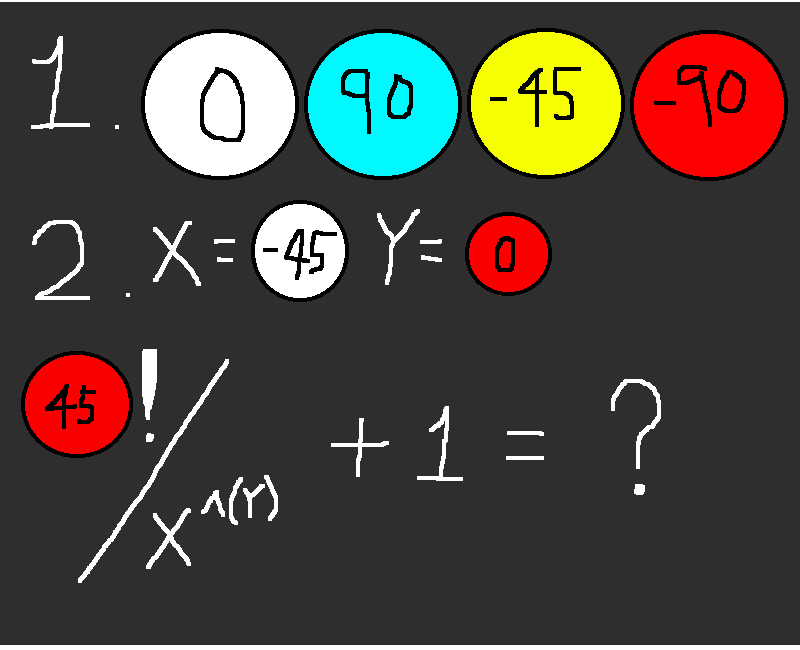 1. 0 90 -45 -90
2. X = -45 Y = 0
45! / X^(Y) + 1 = ?